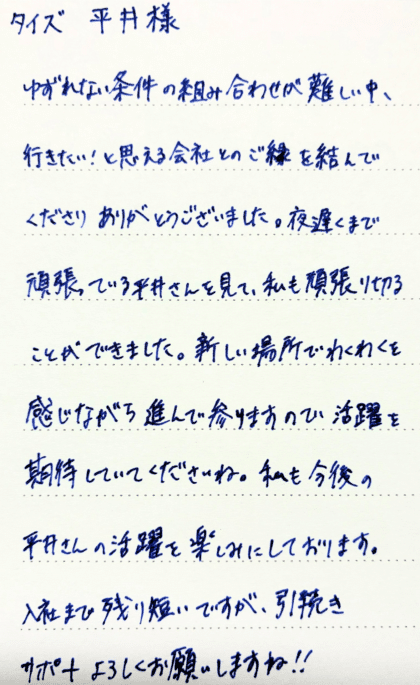 タイズ 平井様
ゆずれない条件の組み合わせが難しい中、
行きたい！と思える会社とのご縁を結んで
くださり ありがとうございました。夜遅くまで
頑張っている平井さんを見て、私も頑張り切る
ことができました。新しい場所でわくわくを
感じながら進んで参りますので活躍を
期待していてくださいね。私も今後の
平井さんの活躍を楽しみにしております。
入社まで残り短いですが、引続き
サポートよろしくお願いしますね!!